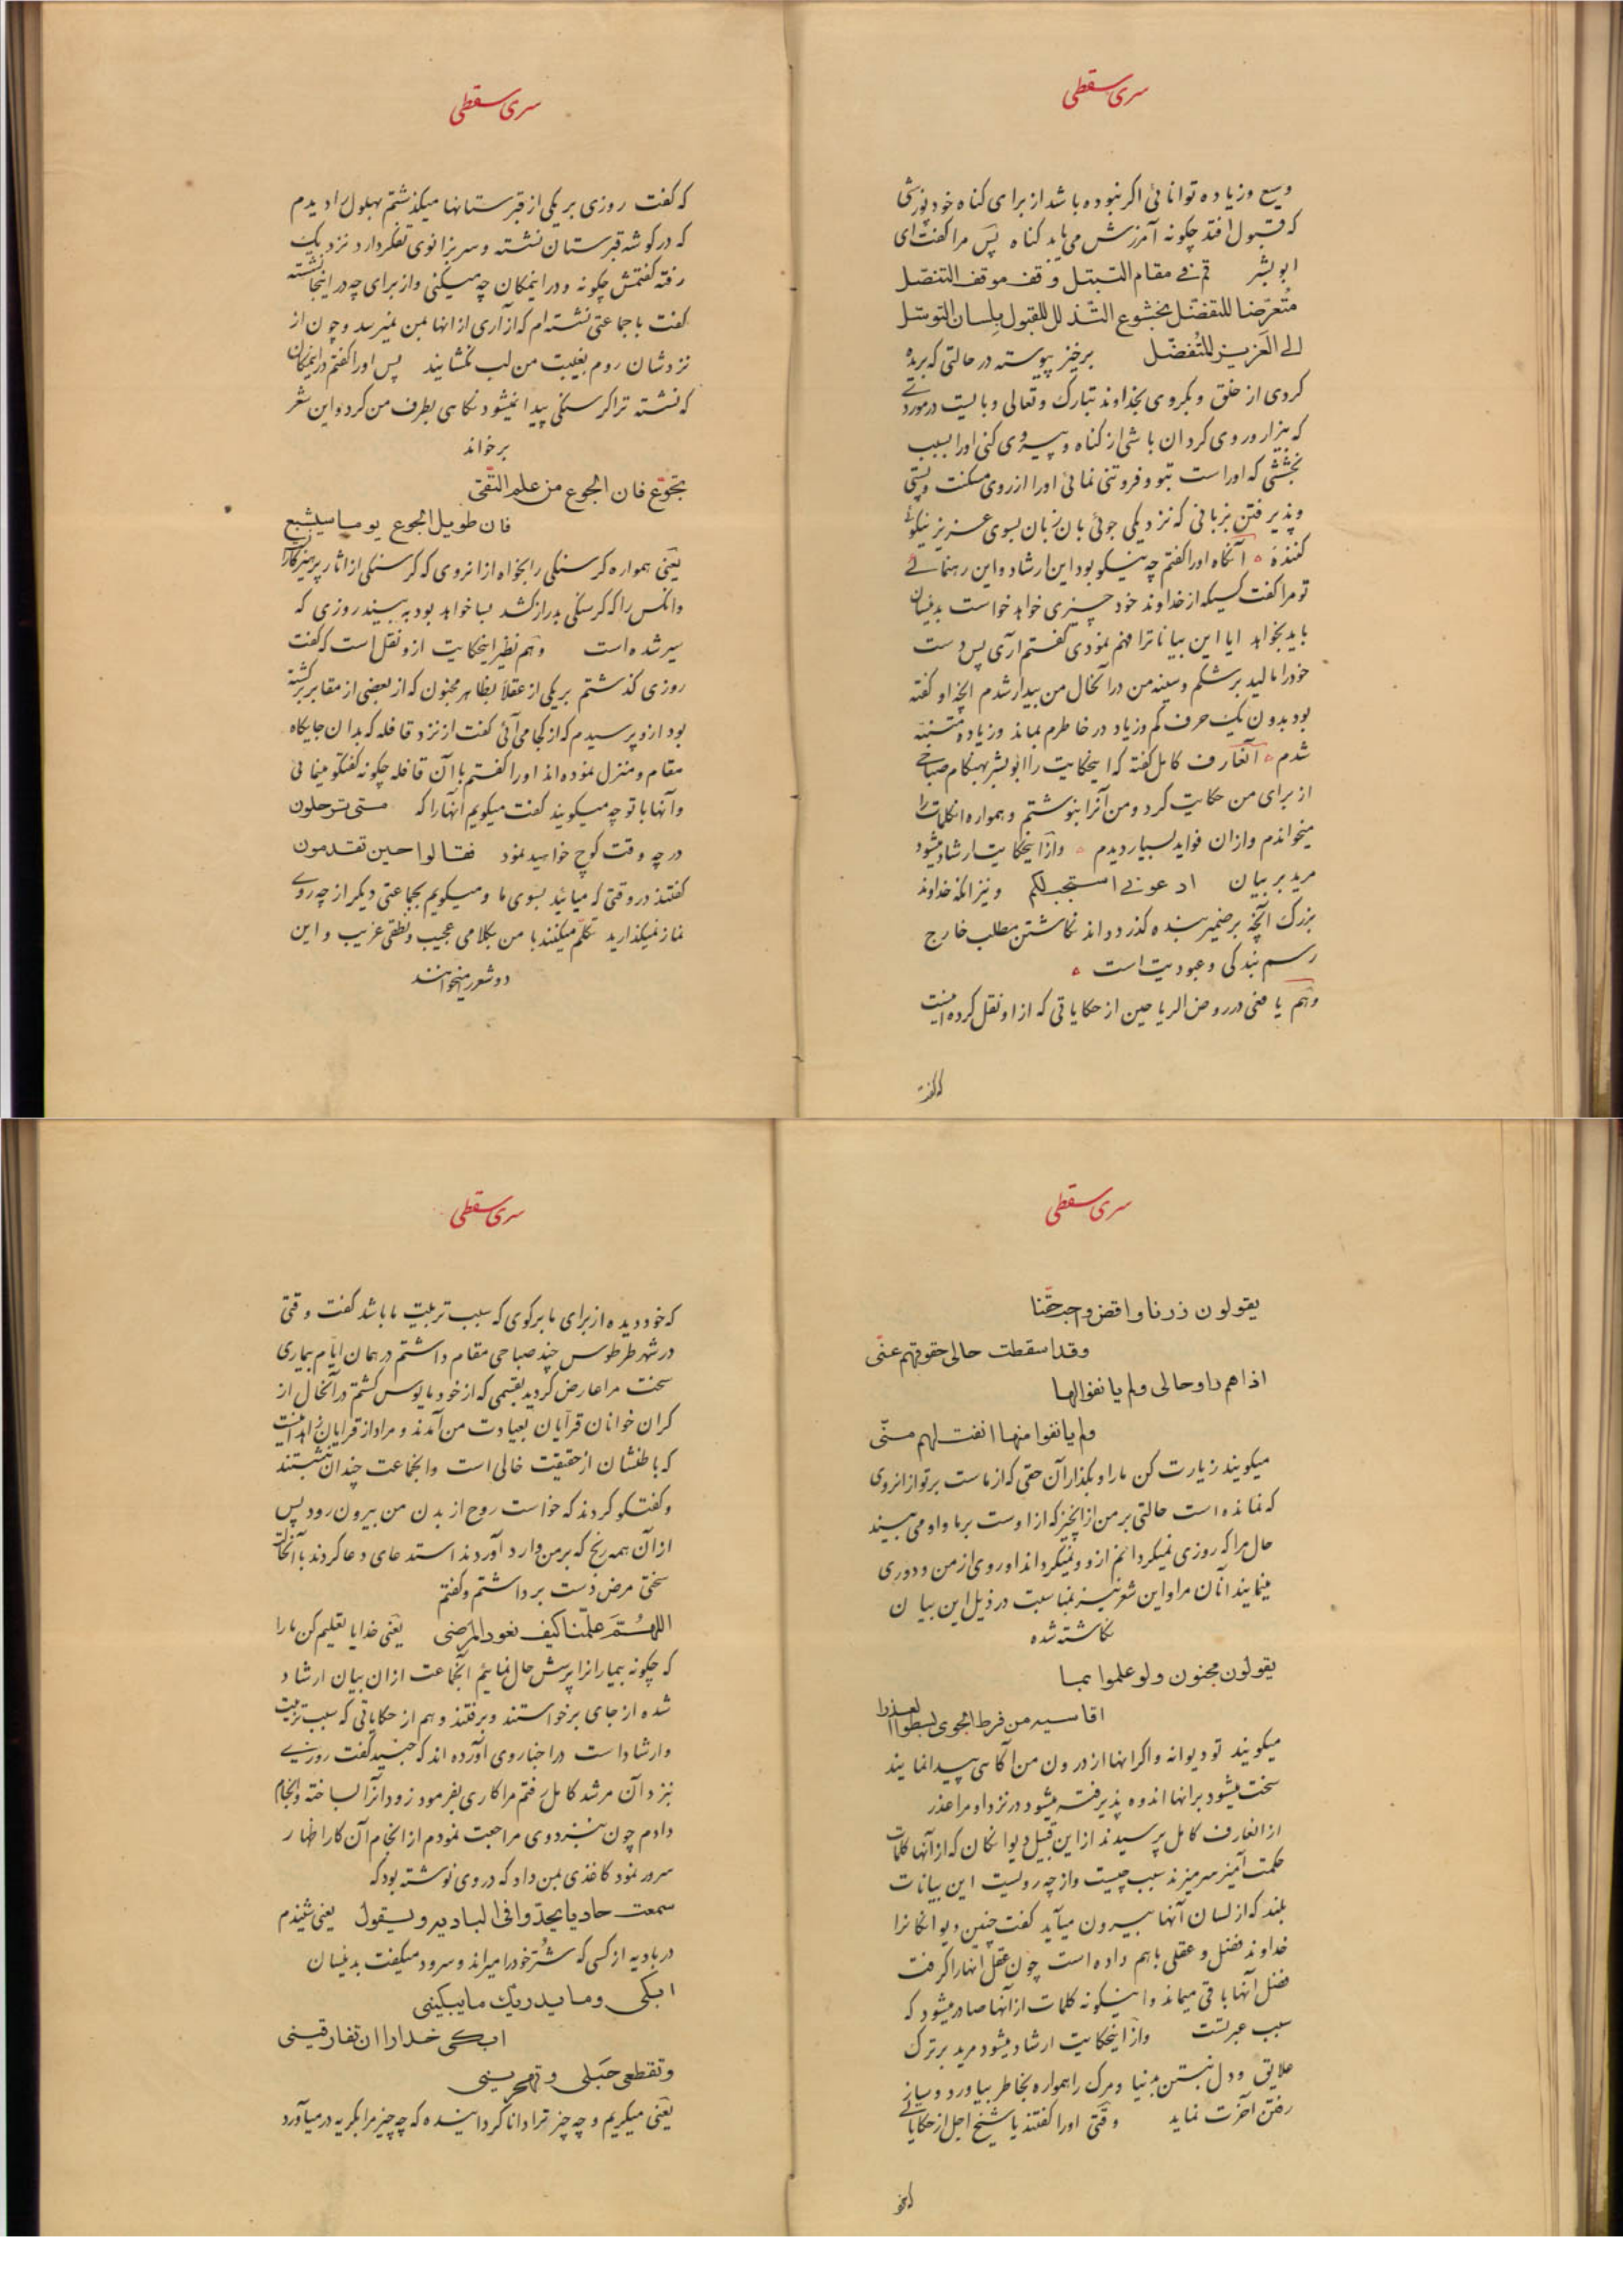 سری سقطی
وسیع وزیاده توانائی اکر نبوده باشد از برای کناه خود پوزشی
که قبول افتد چکونه آمرزش می یابد کناه پس مرا کفت ای
ابو بشر قم فے مقام التبتل وقف موقف التنصل
متعرضا للتفضل بخشوع التذلل للقبول بلسان التوسل
الے العزیز المتفضل برخیز پیوسته در حالتی که بریده
کردی از خلق و بکروی بخداوند تبارک و تعالی و بایست در موردے
که بیزار و روی کردان باشی از کناه و پیروی کنی اورا بسبب
بخششی که اوراست بتو و فروتنی نمائی اورا از روی مسکنت و پستی
و پذیرفتن بزبانی که نزدیکی جوئی بان زبان بسوی عزیز نیکوئے
کننده آنکاه اورا کفتم چه نیکو بود این ارشاد و این رهنمائے
تو مرا کفت کسیکه از خداوند خود چیزی خواهد خواست بدینسان
باید بخواهد ایا این بیانات را فهم نمودی کفتم آری پس دست
خودرا مالید بر شکم و سینه من در آنحال من بیدار شدم آنچه او کفته
بود بدون یک حرف کم و زیاد در خاطرم بماند و زیاده متنبه
شدم آنعارف کامل کفته که اینحکایت را ابو بشر بهنکام صباحے
از برای من حکایت کرد و من آنرا بنوشتم و همواره انکلمات را
میخواندم و از ان فواید بسیار دیدم و از اینحکایت ارشاد میشود
مرید بر بیان ادعونے استجب لکم و نیز انکه خداوند
بزرک آنچه بر ضمیر بنده کذرد داند نکاشتن مطلب خارج
رسم بندکی و عبودیت است
و هم یافعی در روض الریاحین از حکایاتی که از او نقل کرده اینست
که کفت
سری سقطی
که کفت روزی بر یکی از قبرستانها میکذشتم بهلول را دیدم
که در کوشه قبرستان نشسته و سر بزانوی تفکر دارد نزدیک
رفته کفتمش چکونه و در اینمکان چه میکنی و از برای چه در اینجا نشسته
کفت با جماعتی نشسته ام که آزاری از انها بمن نمیرسد و چون از
نزدشان روم بغیبت من لب نکشایند پس اورا کفتم در اینمکان
که نشسته ترا کرسنکی پیدا نمیشود نکاهی بطرف من کرد و این شعر
برخواند
تجوّع فان الجوع من علم التقی
فان طویل الجوع یوما سیشبع
یعنی همواره کرسنکی را بخواه از انروی که کرسنکی از اثار پرهیزکاران
و انکس را که کرسنکی بدراز کشد بسا خواهد بود به بیند روزی که
سیر شده است و هم نظیر اینحکایت از و نقل است که کفت
روزی کذشتم بر یکی از عقلاً بظاهر مجنون که از بعضی از مقابر برکشته
بود از و پرسیدم که از کجا می آئی کفت از نزد قافله که بدان جایکاه
مقام و منزل نموده اند اورا کفتم با آن قافله چکونه کفتکو مینمائی
و آنها با تو چه میکویند کفت میکویم آنها را که متی ترحلون
در چه وقت کوچ خواهید نمود فقالوا حین تقدمون
کفتند در وقتی که میائید بسوی ما و میکویم بجماعتی دیکر از چه روے
نماز نمیکذارید تکلم میکنند با من بکلامی عجیب و نطقی غریب و این
دو شعر میخوانند
سری سقطی
یقولون زرنا واقض واجب حقنا
وقد اسقطت حالی حقوقهم عنّی
اذا هم راوحالی ولم یانفوالها
ولم یانفوا منها انفت لهم منّی
میکویند زیارت کن مارا و بکذار آن حقی که از ماست بر تو از انروی
که نمانده است حالتی بر من از آنچیز که از اوست بر ما و او می بیند
حال مرا که روزی نمیکردانم از و و نمیکرداند او روی از من و دوری
مینمایند آنان مرا و این شعر نیز بمناسبت در ذیل این بیان
نکاشته شده
یقولون مجنون ولو علموا بما
اقاسیه من فرط الجوی لبسطوا العذرا
میکویند تو دیوانه و اکر انها از درون من آکاهی پیدا نمایند
سخت میشود بر انها اندوه پذیرفته میشود در نزد او مرا عذر
از انعارف کامل پرسیدند از این قبیل دیوانکان که از آنها کلمات
حکمت آمیز سر میزند سبب چیست و از چه رولیست این بیانات
بلند که از لسان آنها بیرون میآید کفت چنین دیوانکان را
خداوند فضل و عقلی باهم داده است چون عقل آنها را کرفت
فضل آنها باقی میماند و اینکونه کلمات از آنها صادر میشود که
سبب عبرتست و از اینحکایت ارشاد میشود مرید بر ترک
علایق و دل نبستن بدنیا و مرک را همواره بخاطر بیاورد و ساز
رفتن آخرت نماید وقتی اورا کفتند یا شیخ اجل از حکایاتے
که خو
سری سقطی
که خود دیده از برای ما برکوی که سبب تربیت ما باشد کفت وقتی
در شهر طرطوس چند صباحی مقام داشتم در همان ایام بیماری
سخت مرا عارض کردید بقسمی که از خود مایوس کشتم در آنحال از
کران خوانان قرآیان بعیادت من آمدند و مراد از قرایان زاهد اینست
که باطنشان از حقیقت خالی است و انجماعت چندان بنشستند
و کفتکو کردند که خواست روح از بدن من بیرون رود پس
از آن همه رنج که بر من وارد آوردند استدعای دعا کردند با آنحالت
سختی مرض دست برداشتم و کفتم
اللهُمَّ علّمنا کیف نعود المرضی یعنی خدایا تعلیم کن مارا
که چکونه بیمارانرا پرسش حال نمائیم آنجماعت از ان بیان ارشاد
شده از جای برخواستند و برفتند و هم از حکایاتی که سبب تربیت
و ارشاد است در اخبار وی آورده اند که جنید کفت روزے
نزد آن مرشد کامل رفتم مرا کاری بفرمود زود انرا بساخته و انجام
دادم چون بنزد وی مراجعت نمودم از انجام آن کار اظهار
سرور نمود کاغذی بمن داد که در وی نوشته بود که
سمعت حادیا یحدو فی البادیه ویقول یعنی شنیدم
در بادیه از کسی که شتر خودرا میراند و سرود میکفت بدینسان
ابکی وما یدریک ما یبکینی
ابکی حذارا ان تفارقینی
وتقطعی حبلی وتهجرینی
یعنی میکریم و چه چیز ترا دانا کردانیده که چه چیز مرا بکریه در میآورد